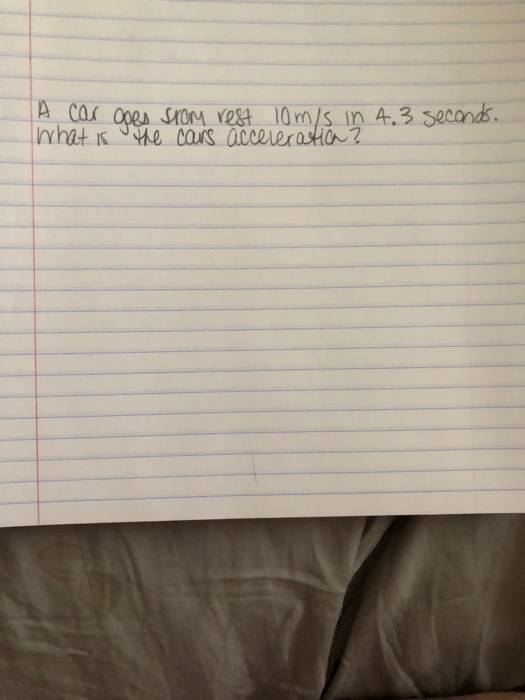 A car goes from rest 10m/s in 4.3 seconds.
What is the cars acceleration?